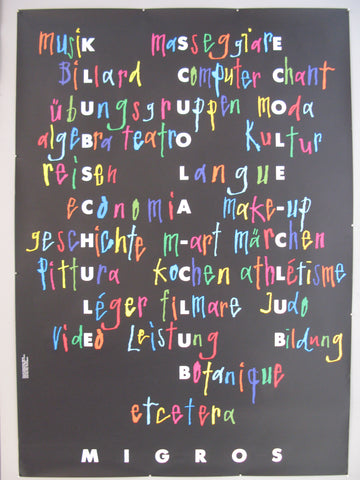 musiK maSseggiarE
BiLlard Computer Chant
übUngsgrUppen mOda
algeBra teatrO KuLtur
reiSen LanguE
eConomiA make-up
gescHichte m-art märChen
pittUra koChen athLétisme
Léger fiLmare jUdo
vidEo LeistUng Bildung
Botanique
etcetera
MIGROS